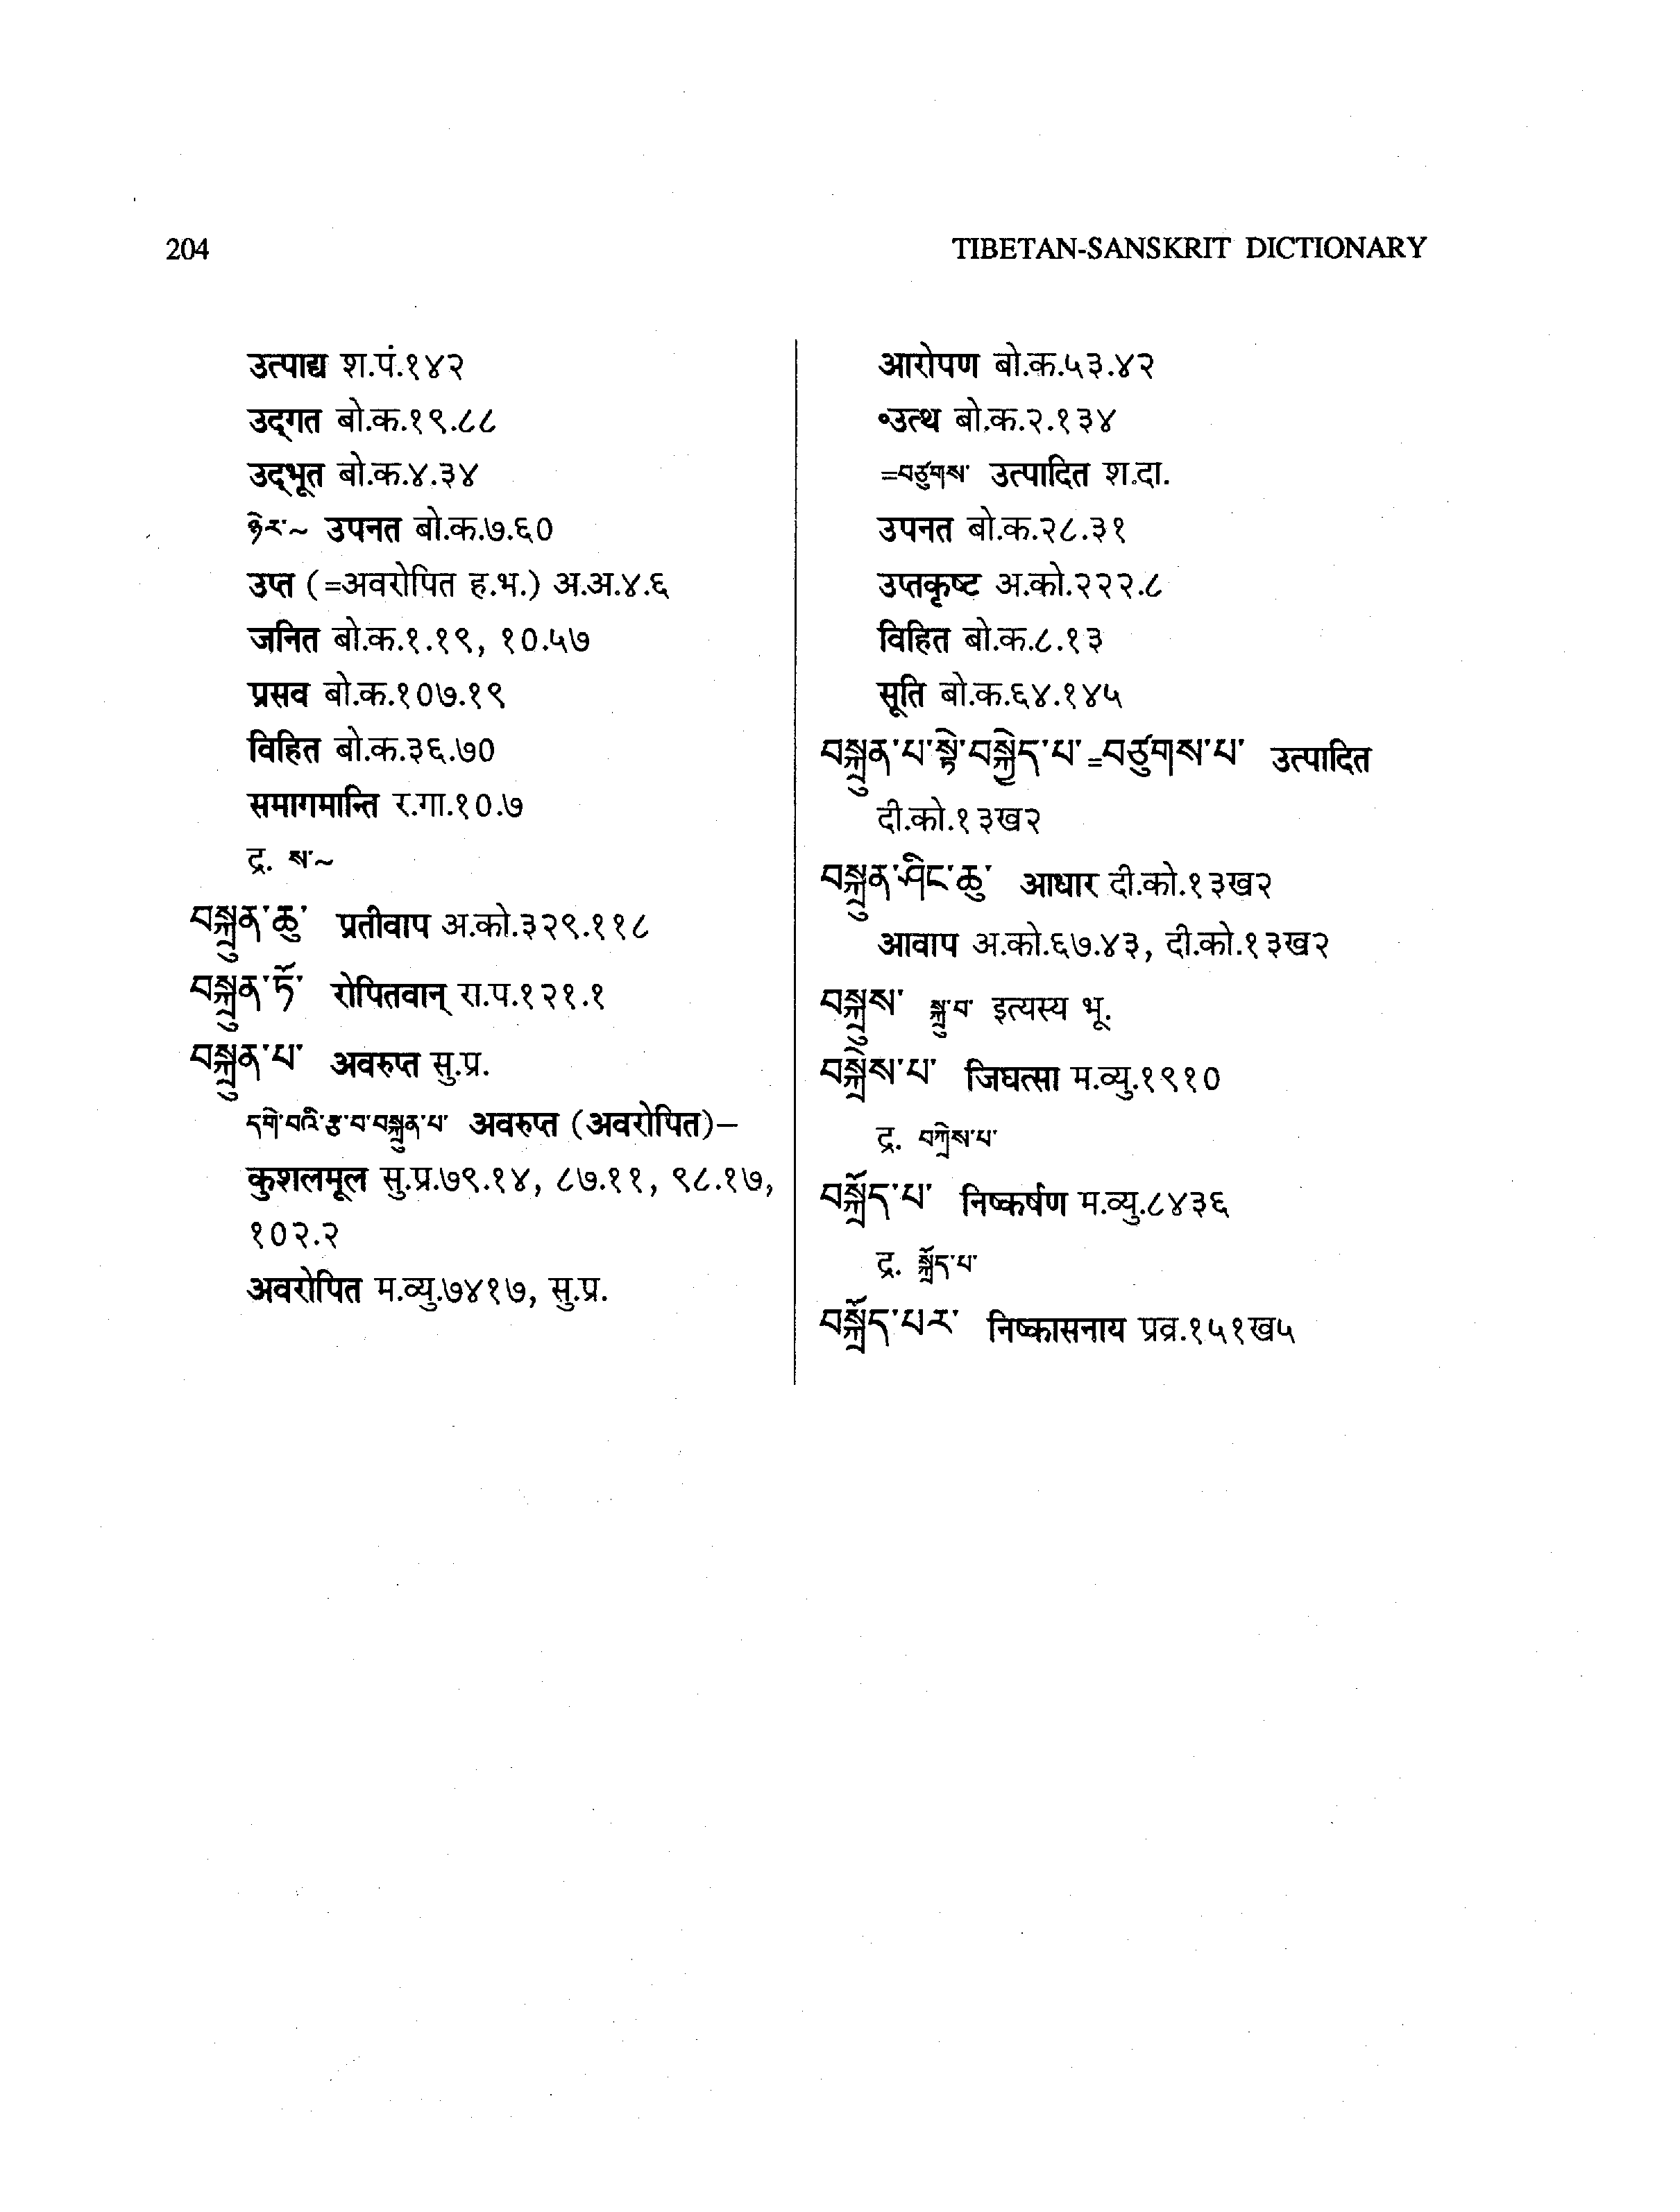 204
TIBETAN-SANSKRIT DICTIONARY
उत्पाद्य श.पं.१४२
उद्‌गत बो.क.१९.८८
उद्‌भूत बो.क.४.३४
ཉེར་~ उपनत बो.क.७.६०
उप्त (=अवरोपित ह.भ.) अ.अ.४.६
जनित बो.क.१.१९, १०.५७
प्रसव बो.क.१०७.१९
विहित बो.क.३६.७०
समागमान्ति र.गा.१०.७
द्र. ས་~
བསྐྲུན་ཆུ་ प्रतीवाप अ.को.३२९.११८
བསྐྲུན་ཏོ་ रोपितवान् रा.प.१२१.१
བསྐྲུན་པ་ अवरुप्त सु.प्र.
དགེ་བའི་རྩ་བ་བསྐྲུན་པ་ अवरुप्त (अवरोपित)–
कुशलमूल सु.प्र.७९.१४, ८७.११, ९८.१७,
१०२.२
अवरोपित म.व्यु.७४१७, सु.प्र.
आरोपण बो.क.५३.४२
॰उत्थ बो.क.२.१३४
=བཙུགས་ उत्पादित श.दा.
उपनत बो.क.२८.३१
उप्तकृष्ट अ.को.२२२.८
विहित बो.क.८.१३
सूति बो.क.६४.१४५
བསྐྲུན་པ་སྟེ་བསྐྱེད་པ་=བཙུགས་པ་ उत्पादित
दी.को.१३ख२
བསྐྲུན་ཤིང་ཆུ་ आधार दी.को.१३ख२
आवाप अ.को.६७.४३, दी.को.१३ख२
བསྐྲུས་ སྐྲུ་བ་ इत्यस्य भू.
བསྐྲེས་པ་ जिघत्सा म.व्यु.१९१०
द्र. བཀྲེས་པ་
བསྐྲོད་པ་ निष्कर्षण म.व्यु.८४३६
द्र. སྐྲོད་པ་
བསྐྲོད་པར་ निष्कासनाय प्रव्र.१५१ख५